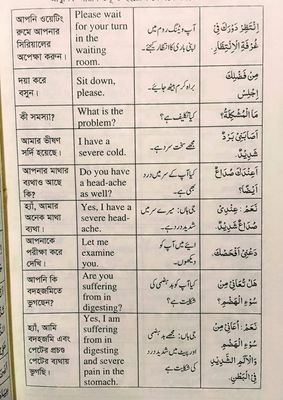 আপনি ওয়েটিং
রুমে আপনার
সিরিয়ালের
অপেক্ষা করুন।
Please wait
for your turn
in the
waiting
room.
آپ ویٹنگ روم میں
اپنی باری کا انتظار کیجئے۔
اِنْتَظِرْ دَوْرَكَ فِيْ
غُرْفَةِ الْاِنْتِظَارِ.
দয়া করে
বসুন।
Sit down,
please.
براہ کرم بیٹھ جائیے۔
مِنْ فَضْلِكَ
اِجْلِسْ
কী সমস্যা?
What is the
problem?
کیا تکلیف ہے؟
مَا الْمُشْكِلَةُ؟
আমার ভীষণ
সর্দি হয়েছে।
I have a
severe cold.
مجھے سخت سردی ہے۔
اَصَابَنِيْ بَرْدٌ
شَدِيْدٌ.
আপনার মাথার
ব্যথাও আছে
কি?
Do you have
a head-ache
as well?
کیا آپ کے سر میں درد
بھی ہے۔
اَعِنْدَكَ صُدَاعٌ
اَيْضًا؟
হ্যাঁ, আমার
অনেক মাথা
ব্যথা।
Yes, I have a
severe head-
ache.
جی ہاں: میرے سر میں
شدید درد ہے۔
نَعَمْ: عِنْدِيْ
صُدَاعٌ شَدِيْدٌ.
আপনাকে
পরীক্ষা করে
দেখি।
Let me
examine
you.
آیئے میں آپ کو
دیکھوں۔
دَعْنِيْ اَفْحَصْكَ
আপনি কি
বদহজমিতে
ভুগছেন?
Are you
suffering
from in
digesting?
کیا آپ کو بدہضمی کی
شکایت ہے؟
هَلْ تُعَانِيْ مِنْ
سُوْءِ الْهَضْمِ؟
হ্যাঁ, আমি
বদহজমি এবং
পেটের প্রচণ্ড
পেটের ব্যথায়
ভুগছি।
Yes, I am
suffering
from in
digesting
and severe
pain in the
stomach.
جی ہاں: مجھے بدہضمی
اور پیٹ میں شدید درد
کی شکایت ہے
نَعَمْ: اُعَانِيْ مِنْ
سُوْءِ الْهَضْمِ
وَالْاَلَمِ الشَّدِيْدِ
فِي الْبَطْنِ.